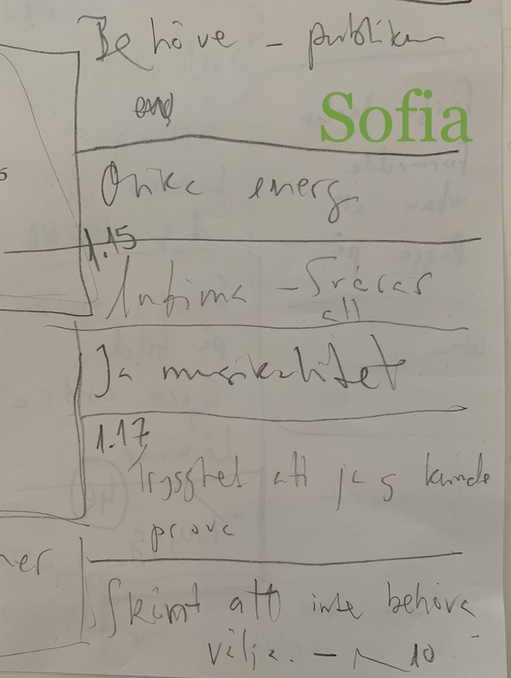 Behöve - publiken
Sofia
Önka energ
1.15
Intima - Svåras
att
Ja musikalitet
1.17
Trygghet att jag kunde
prova
Skönt att inte behöva
välja. - 10
ner